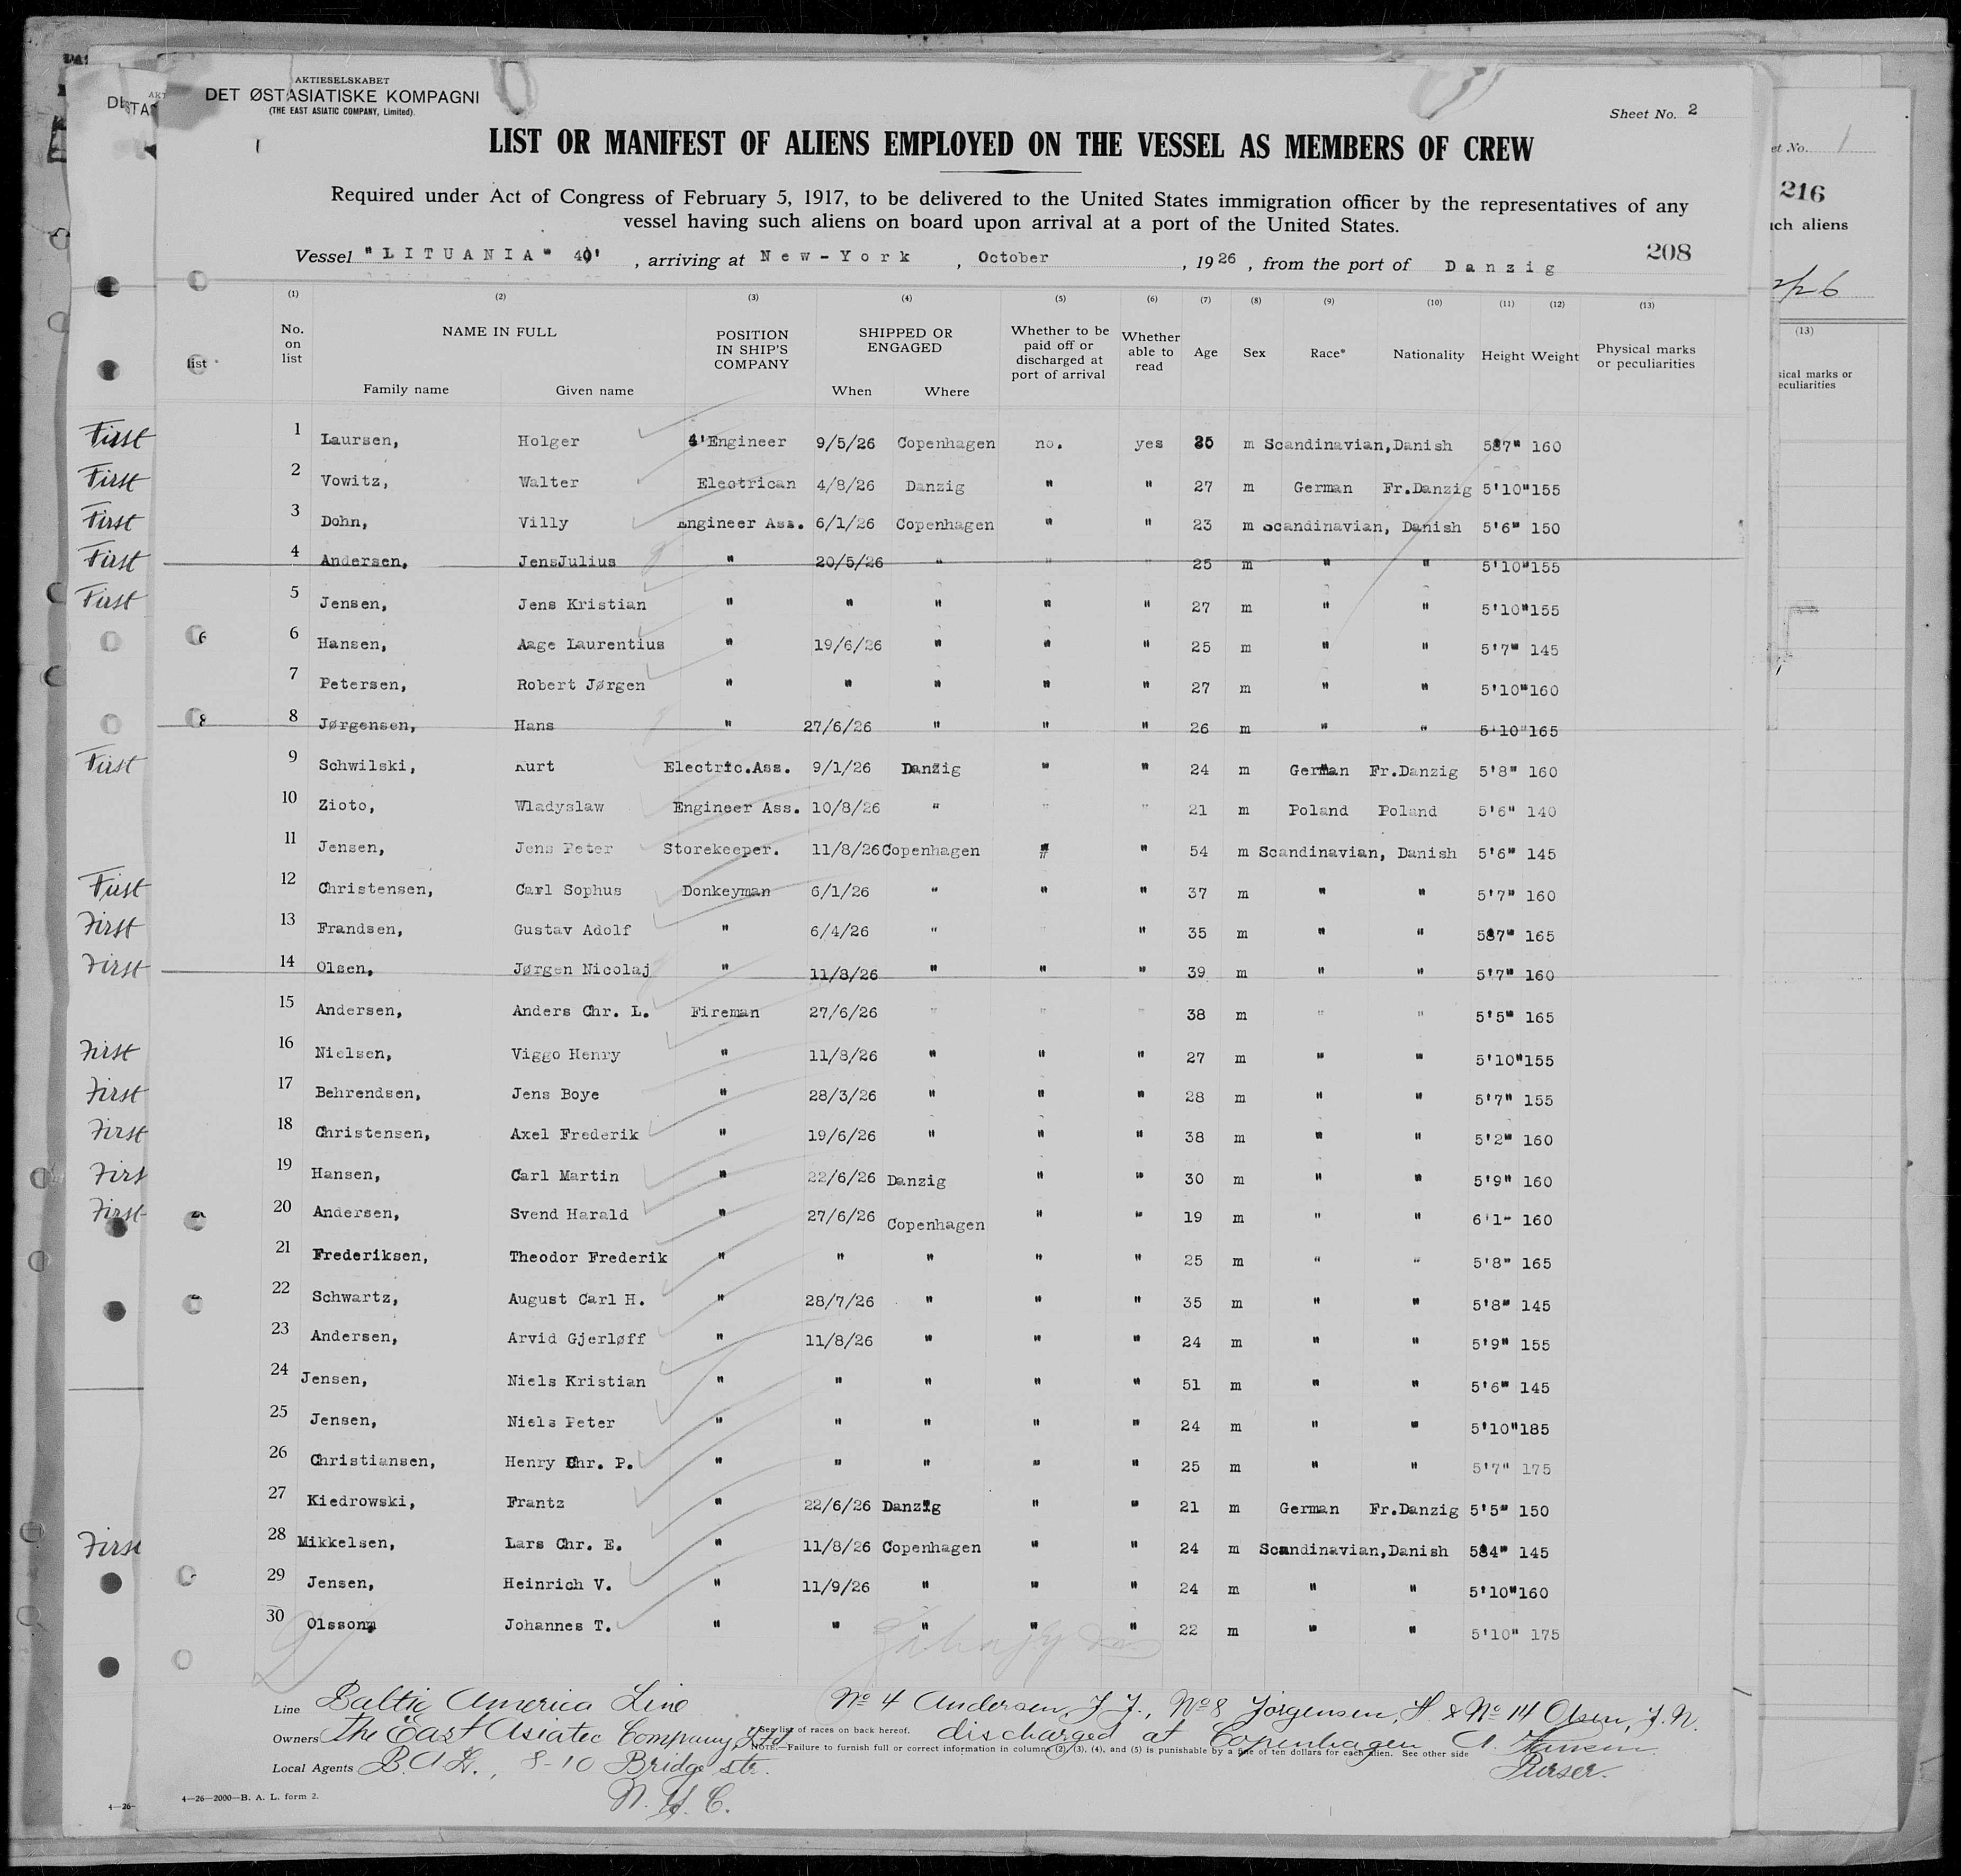 AKTIESELSKABET
DET ØSTASIATISKE KOMPAGNI
(THE EAST ASIATIC COMPANY, Limited).
Sheet No. 2
LIST OR MANIFEST OF ALIENS EMPLOYED ON THE VESSEL AS MEMBERS OF CREW
Required under Act of Congress of February 5, 1917, to be delivered to the United States immigration officer by the representatives of any
vessel having such aliens on board upon arrival at a port of the United States.
208
Vessel "LITUANIA" , arriving at New-York , October , 1926 , from the port of Danzig
(1) (2) (3) (4) (5) (6) (7) (8) (9) (10) (11) (12) (13)
No. on list NAME IN FULL Family name Given name POSITION IN SHIP'S COMPANY SHIPPED OR ENGAGED When Where Whether to be paid off or discharged at port of arrival Whether able to read Age Sex Race* Nationality Height Weight Physical marks or peculiarities
First 1 Laursen, Holger 4'Engineer 9/5/26 Copenhagen no. yes m Scandinavian, Danish 5'7" 160
First 2 Vowitz, Walter Electrican 4/8/26 Danzig " " 27 m German Fr.Danzig 5'10" 155
First 3 Dohn, Villy Engineer Ass. 6/1/26 Copenhagen " " 23 m Scandinavian, Danish 5'6" 150
First 4 Andersen, JensJulius " 20/5/26 " " " 25 m " " 5'10" 155
First 5 Jensen, Jens Kristian " " " " " 27 m " " 5'10" 155
6 Hansen, Aage Laurentius " 19/6/26 " " " 25 m " " 5'7" 145
7 Petersen, Robert Jørgen " " " " " 27 m " " 5'10" 160
8 Jørgensen, Hans " 27/6/26 " " " 26 m " " 5'10" 165
First 9 Schwilski, Kurt Electric.Ass. 9/1/26 Danzig " " 24 m German Fr.Danzig 5'8" 160
10 Zioto, Wladyslaw Engineer Ass. 10/8/26 " " " 21 m Poland Poland 5'6" 140
11 Jensen, Jens Peter Storekeeper. 11/8/26 Copenhagen " " 54 m Scandinavian, Danish 5'6" 145
First 12 Christensen, Carl Sophus Donkeyman 6/1/26 " " " 37 m " " 5'7" 160
First 13 Frandsen, Gustav Adolf " 6/4/26 " " 35 m " " 5'7" 165
First 14 Olsen, Jørgen Nicolaj " 11/8/26 " " " 39 m " " 5'7" 160
15 Andersen, Anders Chr. L. Fireman 27/6/26 " " " 38 m " " 5'5" 165
First 16 Nielsen, Viggo Henry " 11/8/26 " " " 27 m " " 5'10" 155
First 17 Behrendsen, Jens Boye " 28/3/26 " " " 28 m " " 5'7" 155
First 18 Christensen, Axel Frederik " 19/6/26 " " " 38 m " " 5'2" 160
First 19 Hansen, Carl Martin " 22/6/26 Danzig " " 30 m " " 5'9" 160
First 20 Andersen, Svend Harald " 27/6/26 Copenhagen " " 19 m " " 6'1" 160
21 Frederiksen, Theodor Frederik " " " " " 25 m " " 5'8" 165
22 Schwartz, August Carl H. " 28/7/26 " " " 35 m " " 5'8" 145
23 Andersen, Arvid Gjerløff " 11/8/26 " " " 24 m " " 5'9" 155
24 Jensen, Niels Kristian " " " " " 51 m " " 5'6" 145
25 Jensen, Niels Peter " " " " " 24 m " " 5'10" 185
26 Christiansen, Henry Chr. P. " " " " " 25 m " " 5'7" 175
27 Kiedrowski, Frantz " 22/6/26 Danzig " " 21 m German Fr.Danzig 5'5" 150
First 28 Mikkelsen, Lars Chr. E. " 11/8/26 Copenhagen " " 24 m Scandinavian, Danish 5'4" 145
29 Jensen, Heinrich V. " 11/9/26 " " " 24 m " " 5'10" 160
30 Olsson, Johannes T. " " " " " 22 m " " 5'10" 175
Line Baltic America Line
No 4 Andersen, J.J., No 8 Jorgensen, H & No 14 Olsen, J.N.
Owners The East Asiatec Company, Ltd
* See list of races on back hereof.
discharged at Copenhagen
NOTE.—Failure to furnish full or correct information in columns (2), (3), (4), and (5) is punishable by a fine of ten dollars for each alien. See other side
Purser.
Local Agents B.A.L., 8-10 Bridge str.
N.Y.C.
4—26—2000—B. A. L. form 2.
et No. 1
216
uch aliens
(13)
sical marks or
eculiarities
list
6
8
4—26-